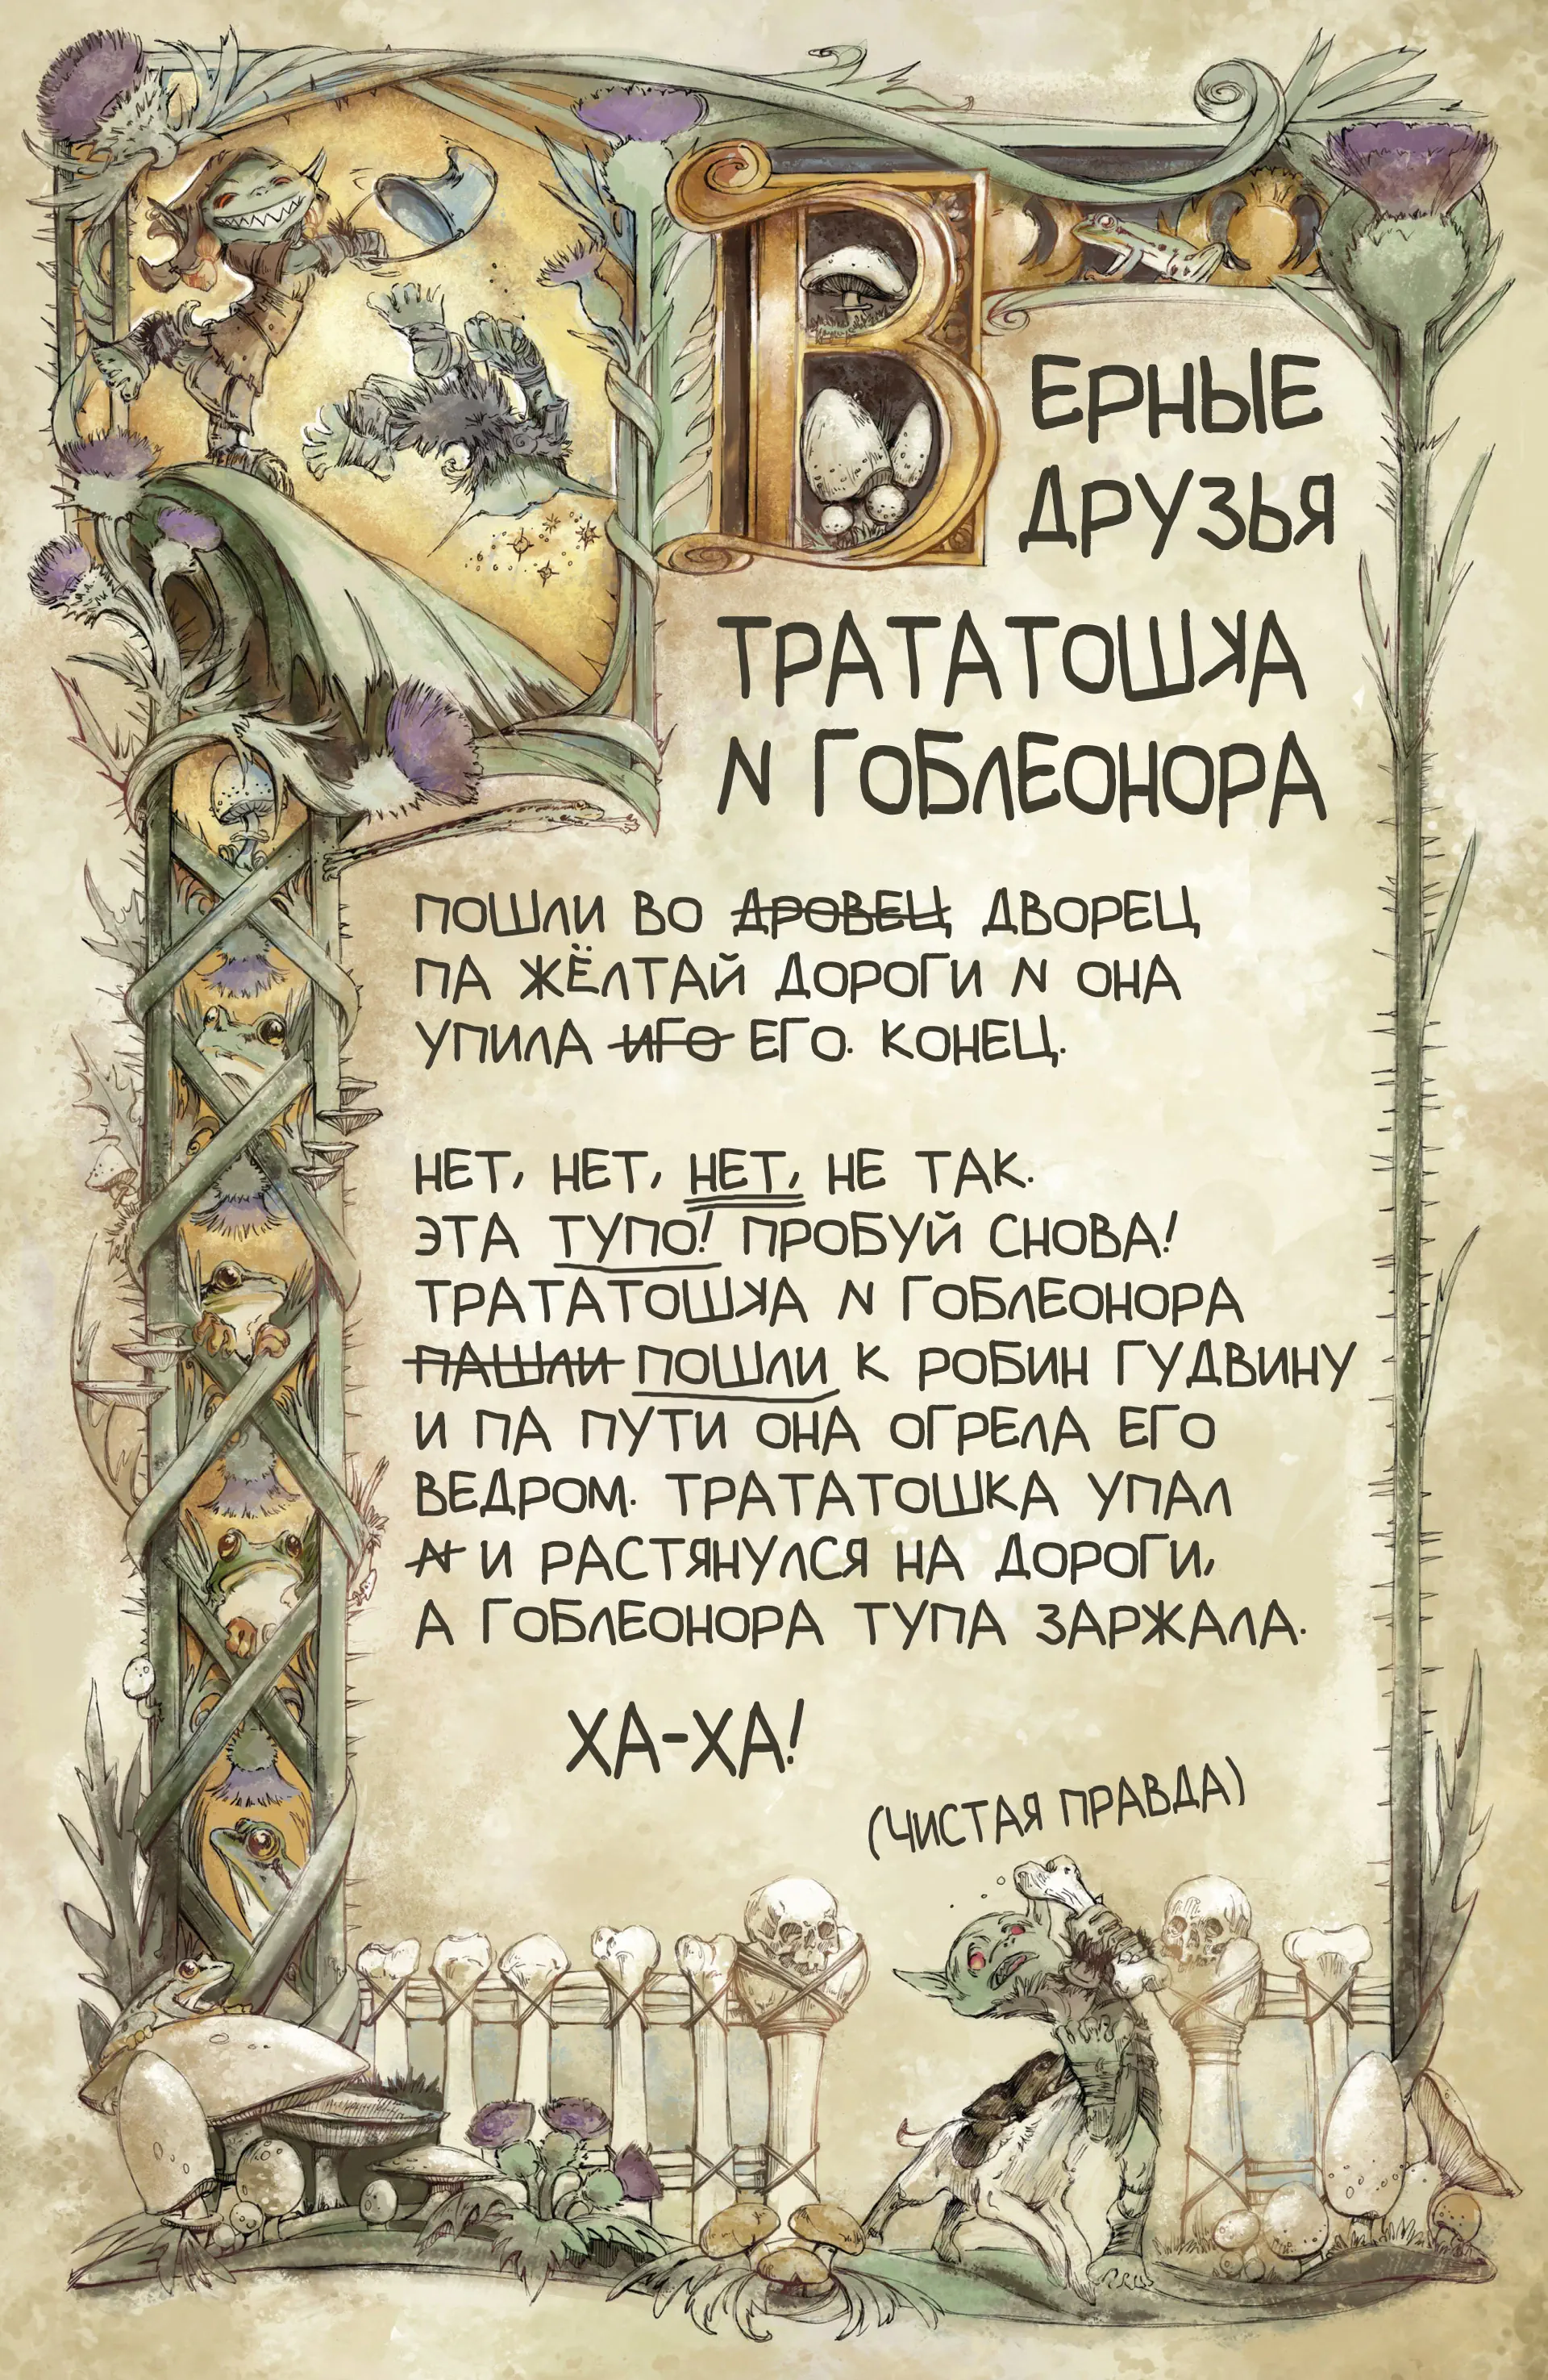 ВЕРНЫЕ
ДРУЗЬЯ
ТРАТАТОШКА
N ГОБЛЕОНОРА
ПОШЛИ ВО ДРОВЕЦ ДВОРЕЦ
ПА ЖЁЛТАЙ ДОРОГИ N ОНА
УПИЛА ИГО ЕГО. КОНЕЦ.
НЕТ, НЕТ, НЕТ, НЕ ТАК.
ЭТА ТУПО! ПРОБУЙ СНОВА!
ТРАТАТОШКА N ГОБЛЕОНОРА
ПАШЛИ ПОШЛИ К РОБИН ГУДВИНУ
И ПА ПУТИ ОНА ОГРЕЛА ЕГО
ВЕДРОМ. ТРАТАТОШКА УПАЛ
N И РАСТЯНУЛСЯ НА ДОРОГИ,
А ГОБЛЕОНОРА ТУПА ЗАРЖАЛА.
ХА-ХА!
(ЧИСТАЯ ПРАВДА)